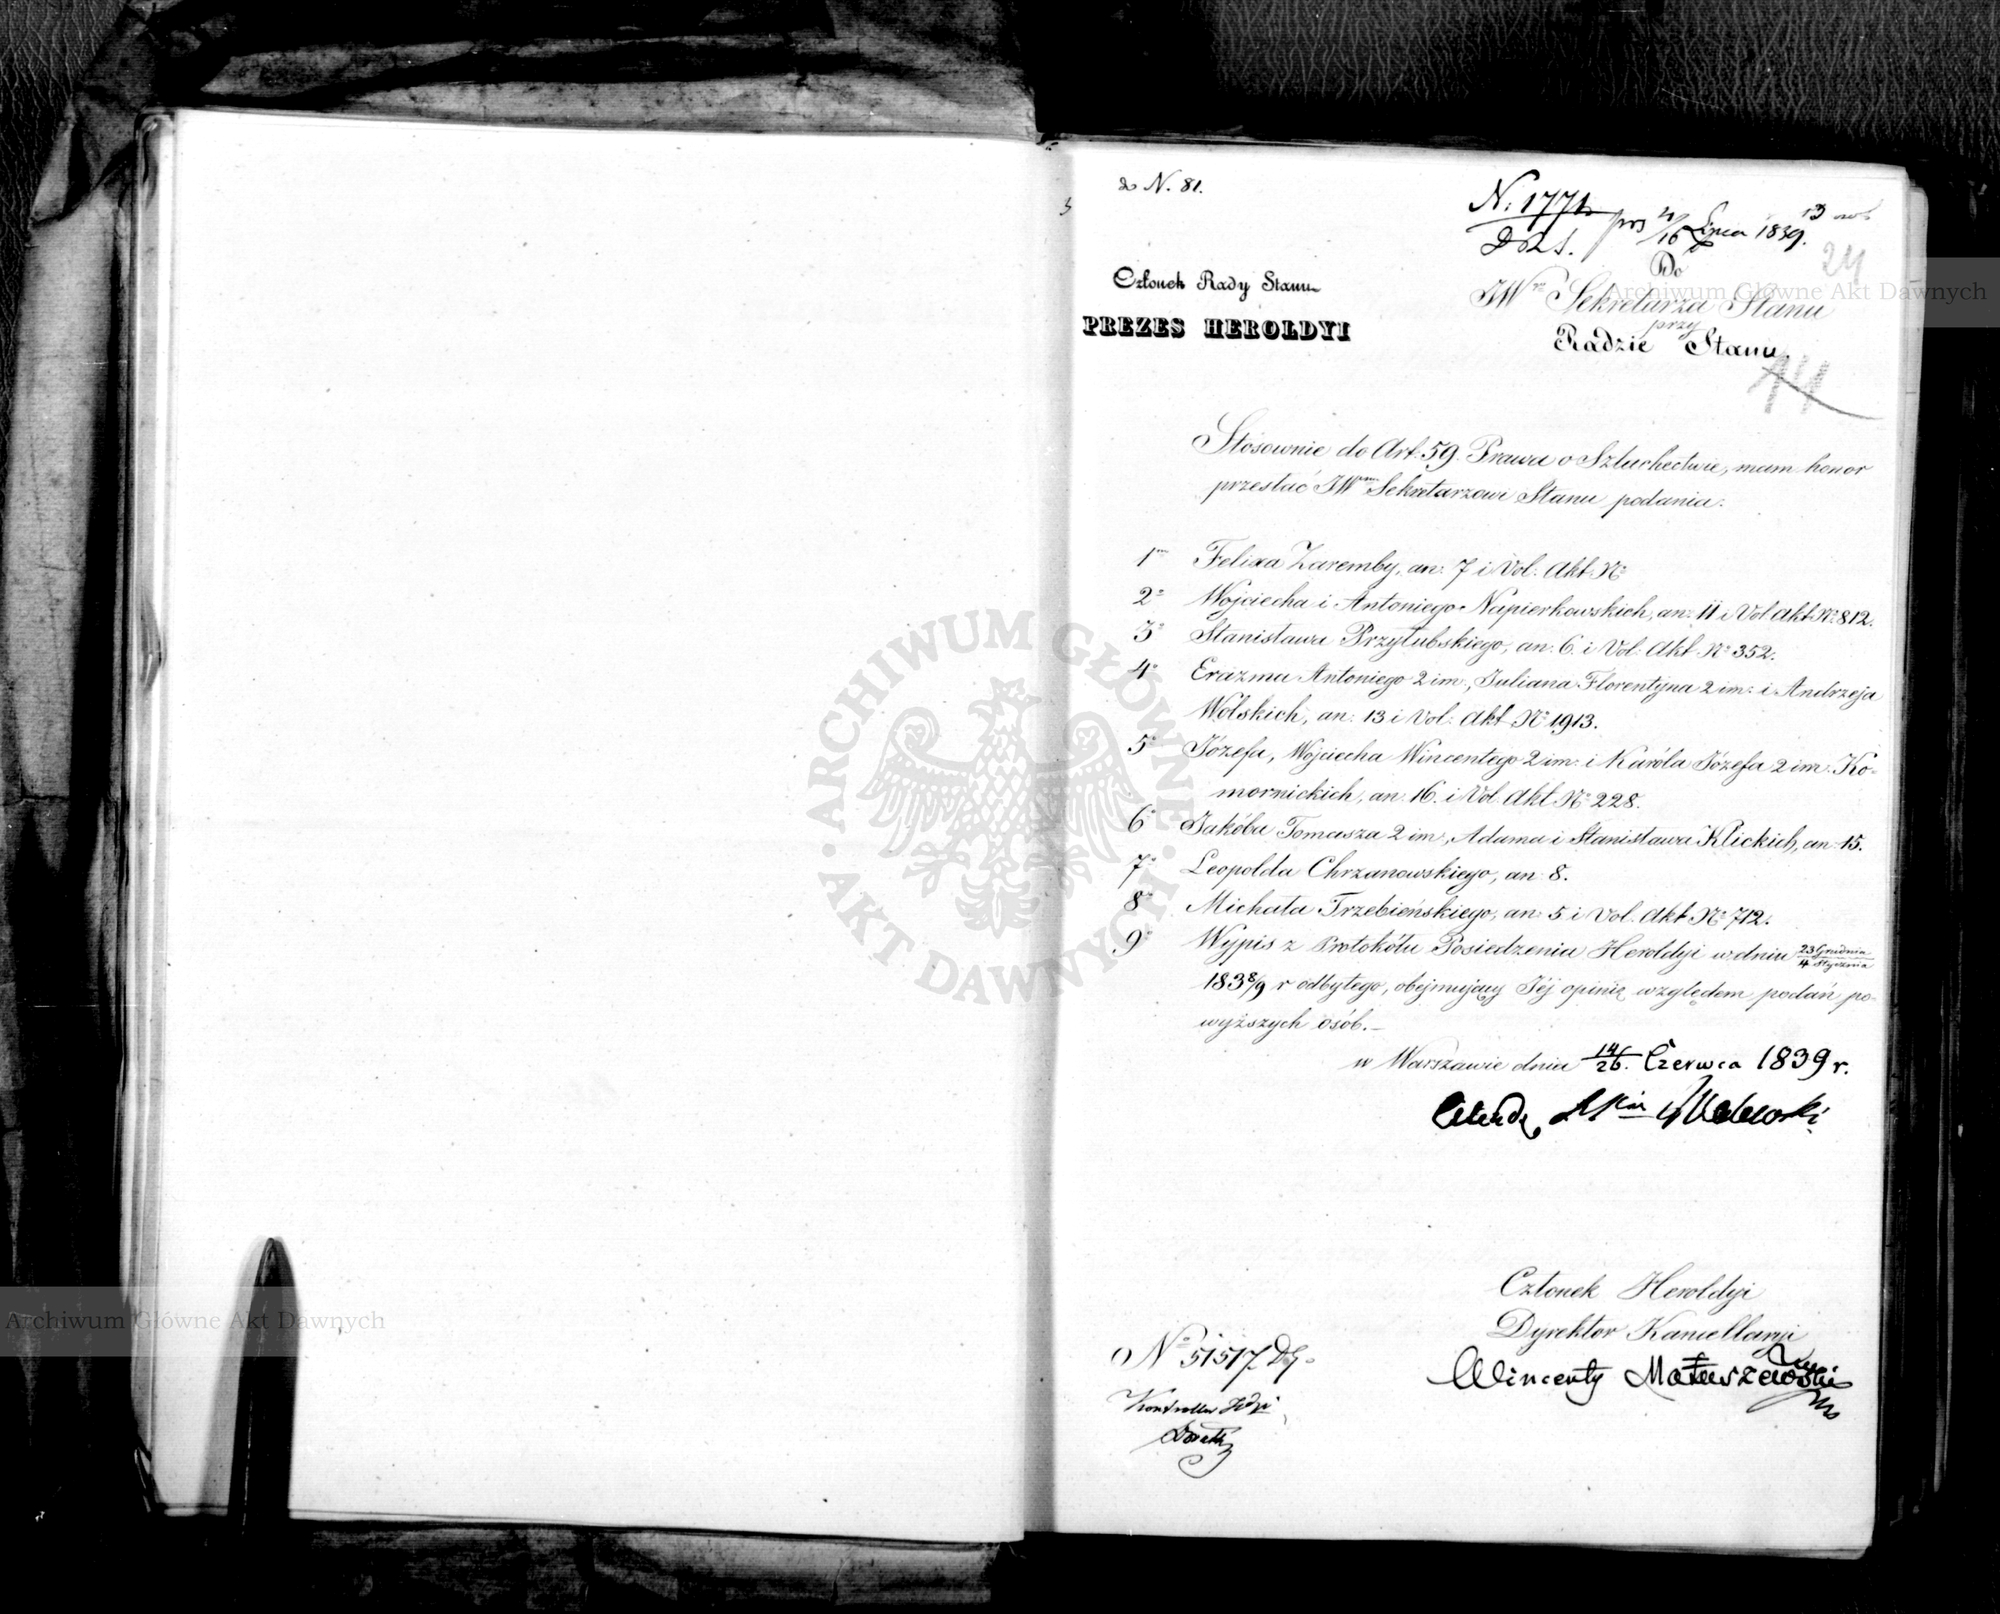 do N. 81.
N. 1771
D R S.
prs 4/16 Lipca 1839.
13
24
Członek Rady Stanu
PREZES HEROLDYI
Do
JWo Sekretarza Stanu
przy
Radzie Stanu.
14
Stósownie do Art. 59. Prawa o Szlachectwie, mam honor
przesłać JWmu Sekretarzowi Stanu podania:
1mo Felixa Zaremby, an: 7 i Vol: Akt No
2o Wojciecha i Antoniego Napierkowskich, an: 11 i Vol Akt No 812.
3o Stanisława Przyłubskiego, an. 6. i Vol: Akt No 352.
4o Erazma Antoniego 2 im:, Juliana Florentyna 2 im: i Andrzeja
Wolskich, an: 13 i Vol: Akt No 1913.
5o Józefa, Wojciecha Wincentego 2 im: i Karóla Józefa 2 im: Ko-
mornickich, an. 16. i Vol. Akt No 228.
6o Jakóba Tomasza 2 im:, Adama i Stanisława Klickich, an: 15.
7o Leopolda Chrzanowskiego, an: 8.
8o Michała Trzebieńskiego, an: 5 i Vol. Akt No 712.
9o Wypis z Protokółu Posiedzenia Heroldyi w dniu 23 Grudnia/4 Stycznia
1838/9 r odbytego, obejmujący Jéj opinię względem podań po-
wyższych osób.
w Warszawie dnia 14/26. Czerwca 1839 r.
Członek Heroldyi
Dyrektor Kancellaryi
Wincenty Matuszewski
No 51517
Kontroller
Archiwum Główne Akt Dawnych
Archiwum Główne Akt Dawnych
ARCHIWUM GŁÓWNE AKT DAWNYCH